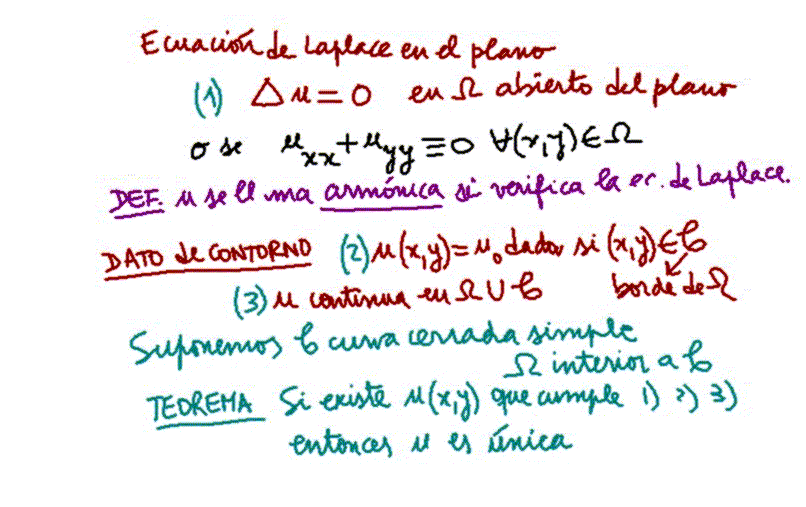 Ecuación de Laplace en el plano
(1) Δu = 0 en Ω abierto del plano
o se u_xx + u_yy ≡ 0 ∀(x,y) ∈ Ω
DEF. u se ll ma armónica si verifica la ec. de Laplace.
DATO de CONTORNO (2) u(x,y) = u₀ dados si (x,y) ∈ 𝒞
borde de Ω
(3) u continua en Ω ∪ 𝒞
Suponemos 𝒞 curva cerrada simple
Ω interior a 𝒞
TEOREMA Si existe u(x,y) que cumple 1) 2) 3)
entonces u es única